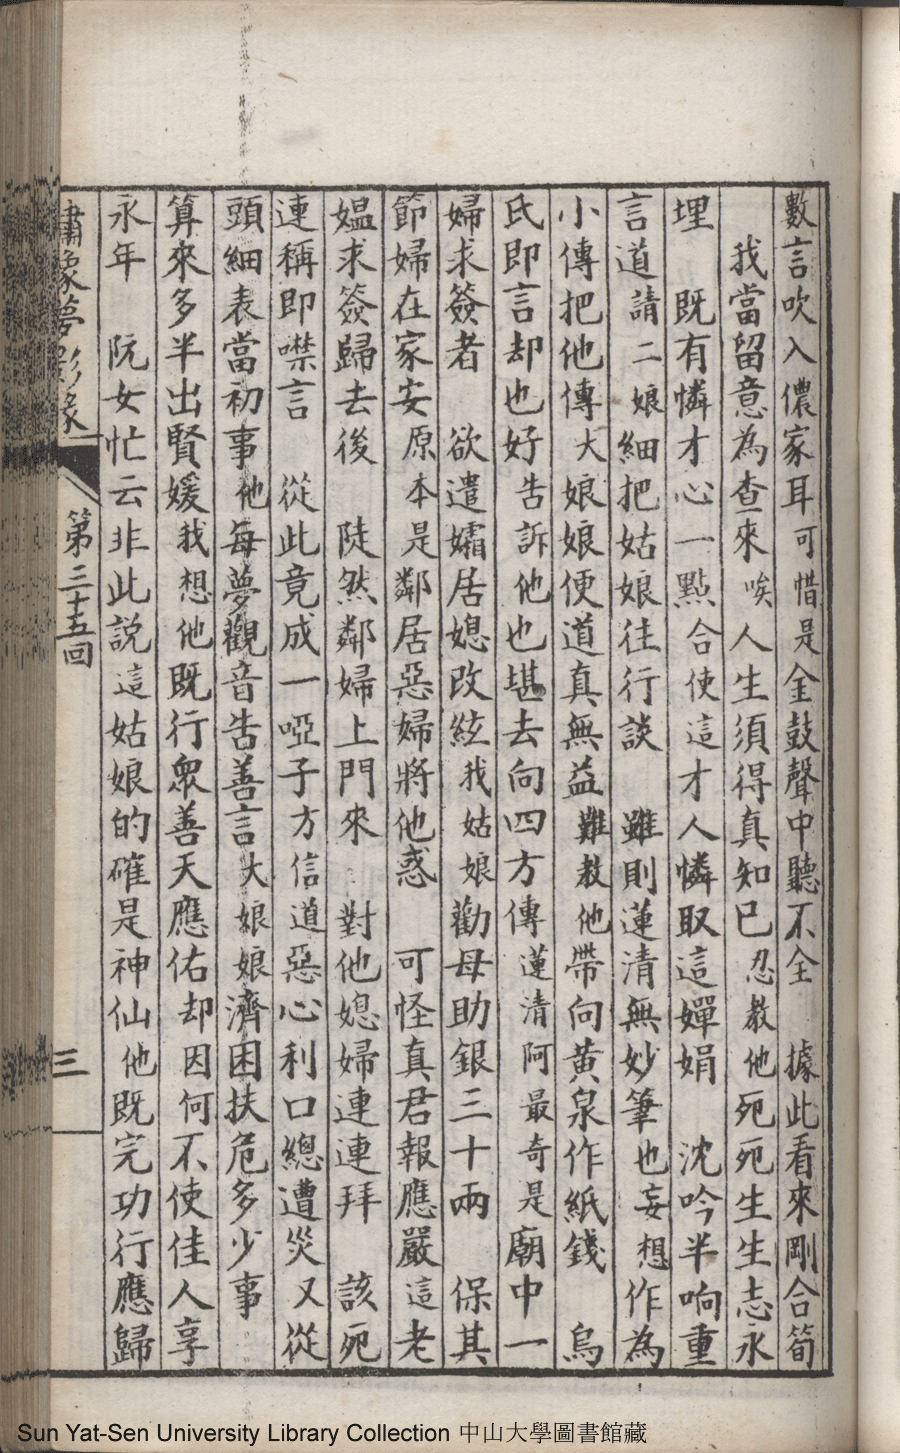 數言吹入儂家耳可惜是金鼓聲中聽不全　據此看來剛合筍
我當留意為查來唉人生須得真知己忍教他死死生生志永
埋　既有憐才心一點合使這才人憐取這嬋娟　沈吟半响重
言道請二娘細把姑娘往行談　雖則蓮清無妙筆也妄想作為
小傳把他傳大娘娘便道真無益難教他帶向黃泉作紙錢　烏
氏即言却也好告訴他也堪去向四方傳蓮清阿最奇是廟中一
婦求簽者　欲遣孀居媳改絃我姑娘勸母助銀三十兩　保其
節婦在家安原本是鄰居惡婦將他惑　可怪真君報應嚴這老
媼求簽歸去後　陡然鄰婦上門來　對他媳婦連連拜　該死
連稱即噤言　從此竟成一啞子方信道惡心利口總遭災又從
頭細表當初事他每夢觀音告善言大娘娘濟困扶危多少事
算來多半出賢媛我想他既行衆善天應佑却因何不使佳人享
永年　阮女忙云非此說這姑娘的確是神仙他既完功行應歸
繡像夢影緣
第三十五回
三
Sun Yat-Sen University Library Collection 中山大學圖書館藏